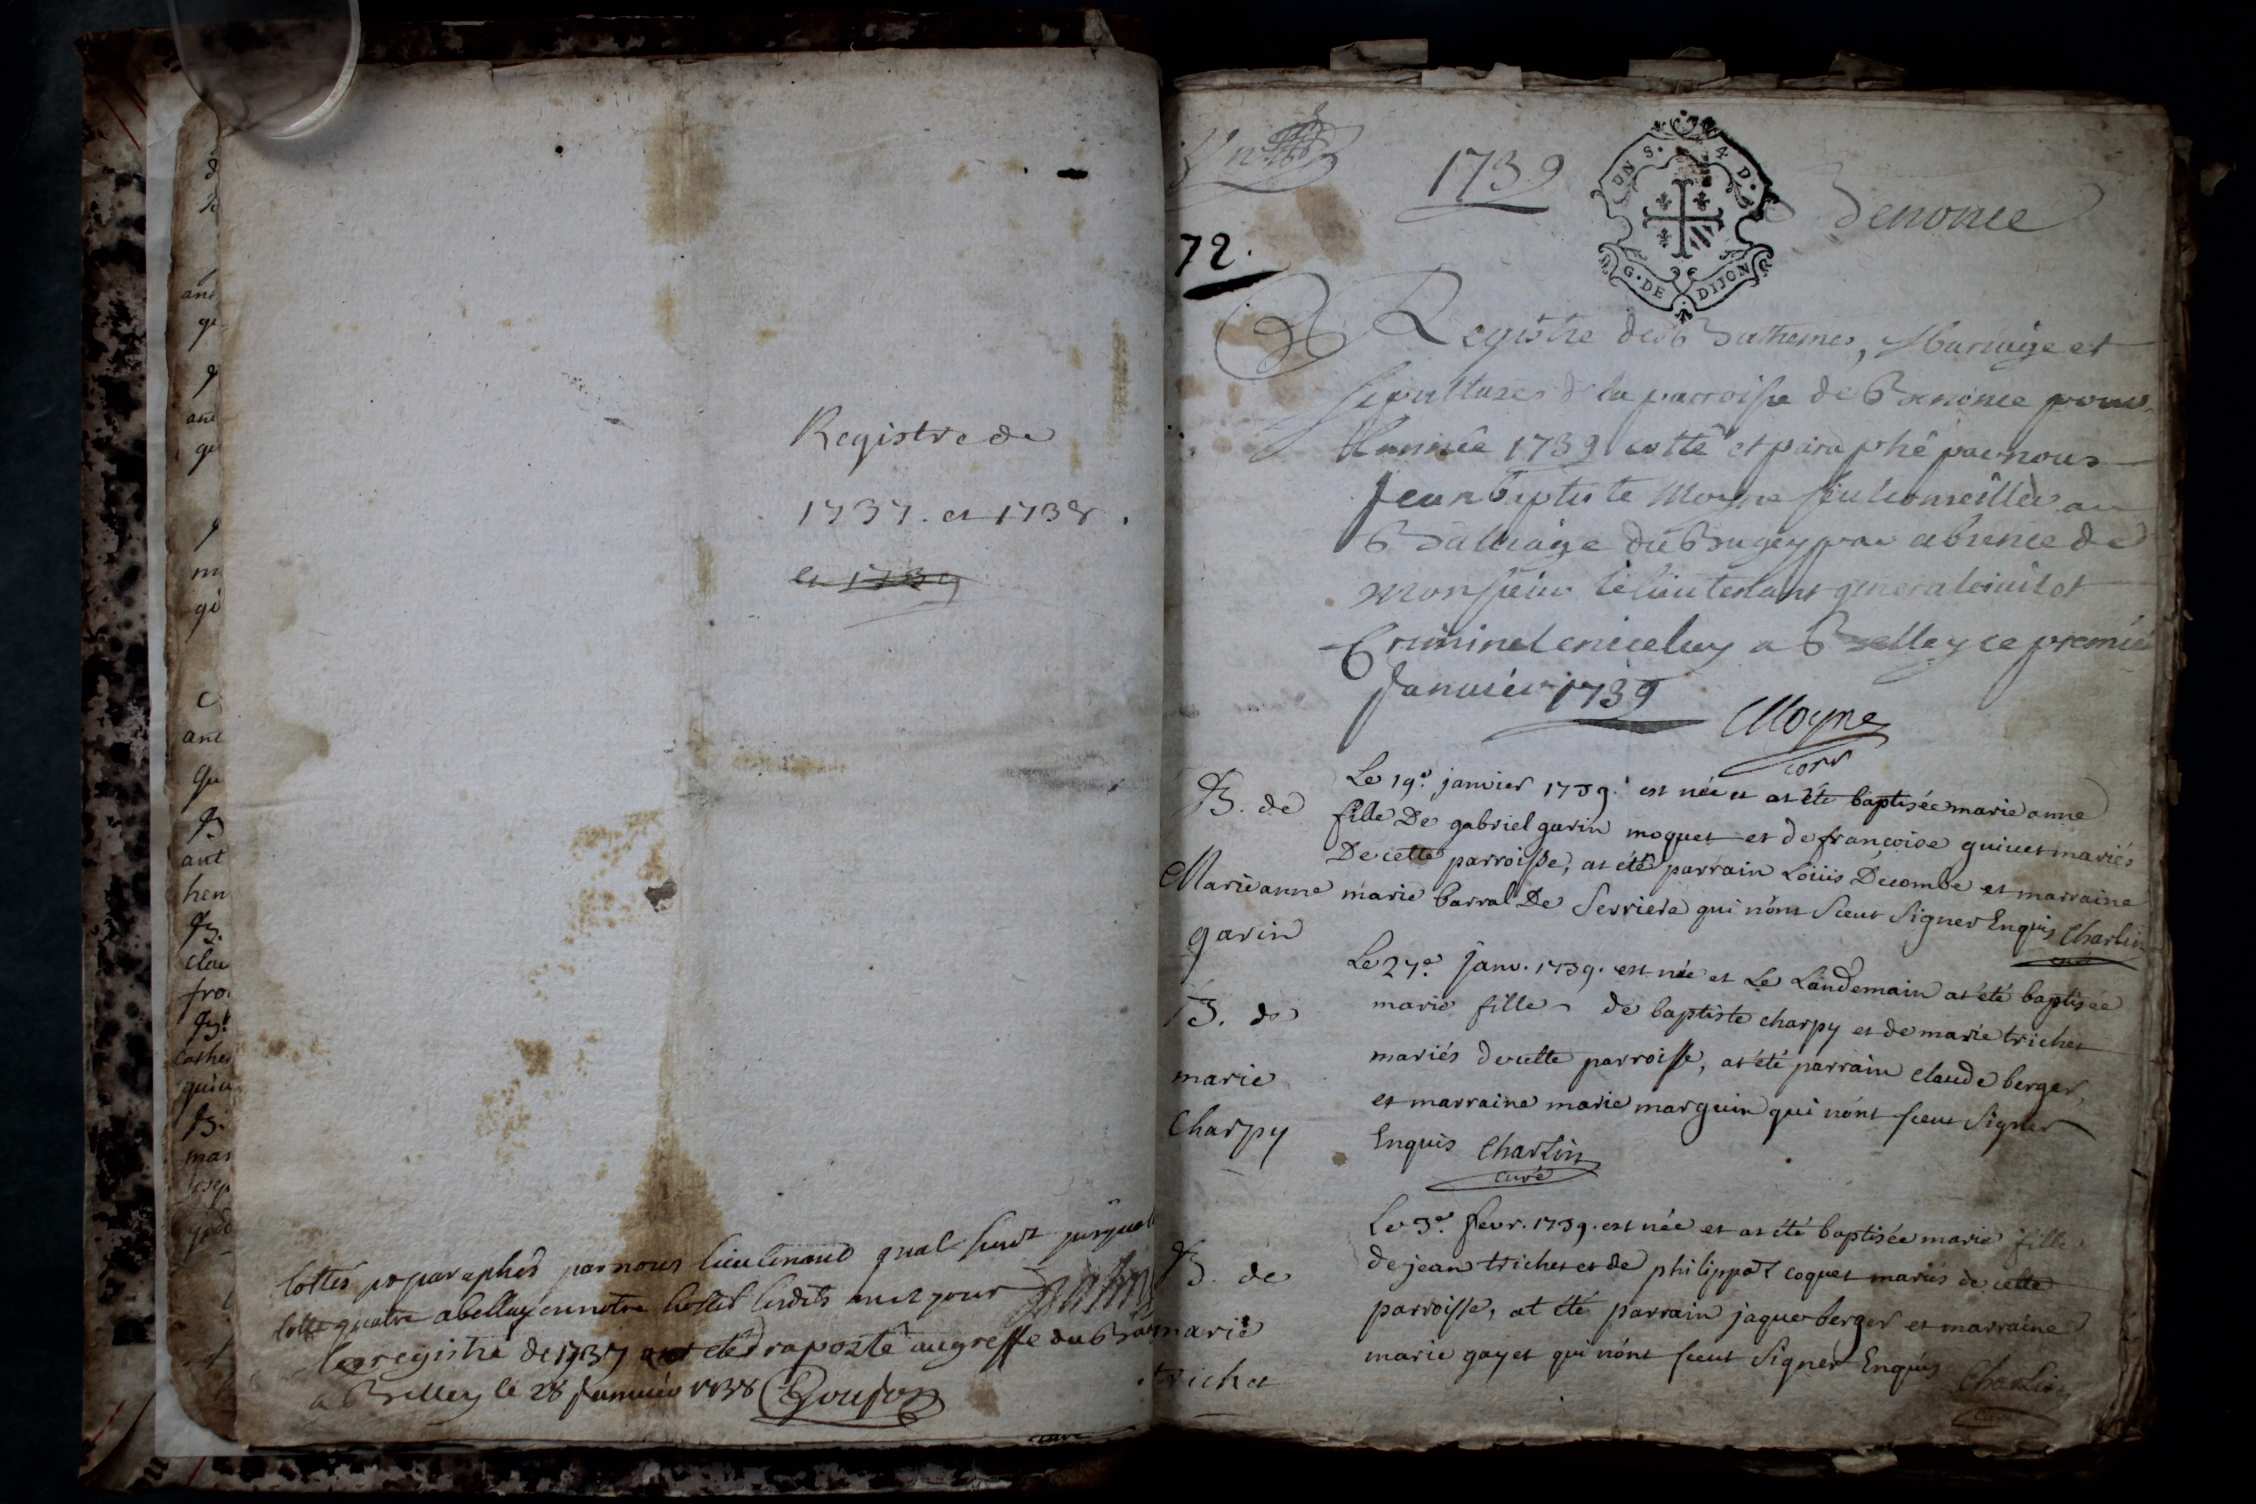 Registre de
1737. et 1738.
et 1739
Cottés et paraphés par nous lieutenant qual. susdt jusques
cotte quatre a belley en notre hostel lesdits an et jour
le registre de 1737 ont eté raporté au greffe du
a Belley le 28 Janvier 1738
1739
UN S. 4 D.
G. DE DIJON
Benonce
72.
Registre des Bathemes, Mariage et
sepultures de la parroisse de Benonce pour
L'année 1739 cotté et paraphé par nous
Jean baptiste Moyne seul conseiller au
Balliage du Bugey par absence de
Monsieur le lieutenant general civil et
Criminel en iceluy a Belley ce premier
Janvier 1739
Moyne
B. de
Marie anne
garin
Le 19e janvier 1739. est née et at été baptisée marie anne
fille De gabriel garin moquet et de françoise guinet mariés
De cette parroisse, at été parrain Loüis Decombe et marraine
marie barral De Serriere qui n'ont sceut signer Enquis Charlin
curé
B. de
marie
Charpy
Le 27e janv. 1739. est née et Le Landemain at été baptisée
marie fille de baptiste charpy et de marie trichet
mariés de cette parroisse, at été parrain claude berger,
et marraine marie marguin qui n'ont sceut signer
Enquis Charlin
curé
B. de
marie
trichet
Le 3e fevr. 1739. est née et at été baptisée marie fille
de jean trichet et de philippat coquet mariés de cette
parroisse, at été parrain jaque berger et marraine
marie gayet qui n'ont sceut signer Enquis Charlin